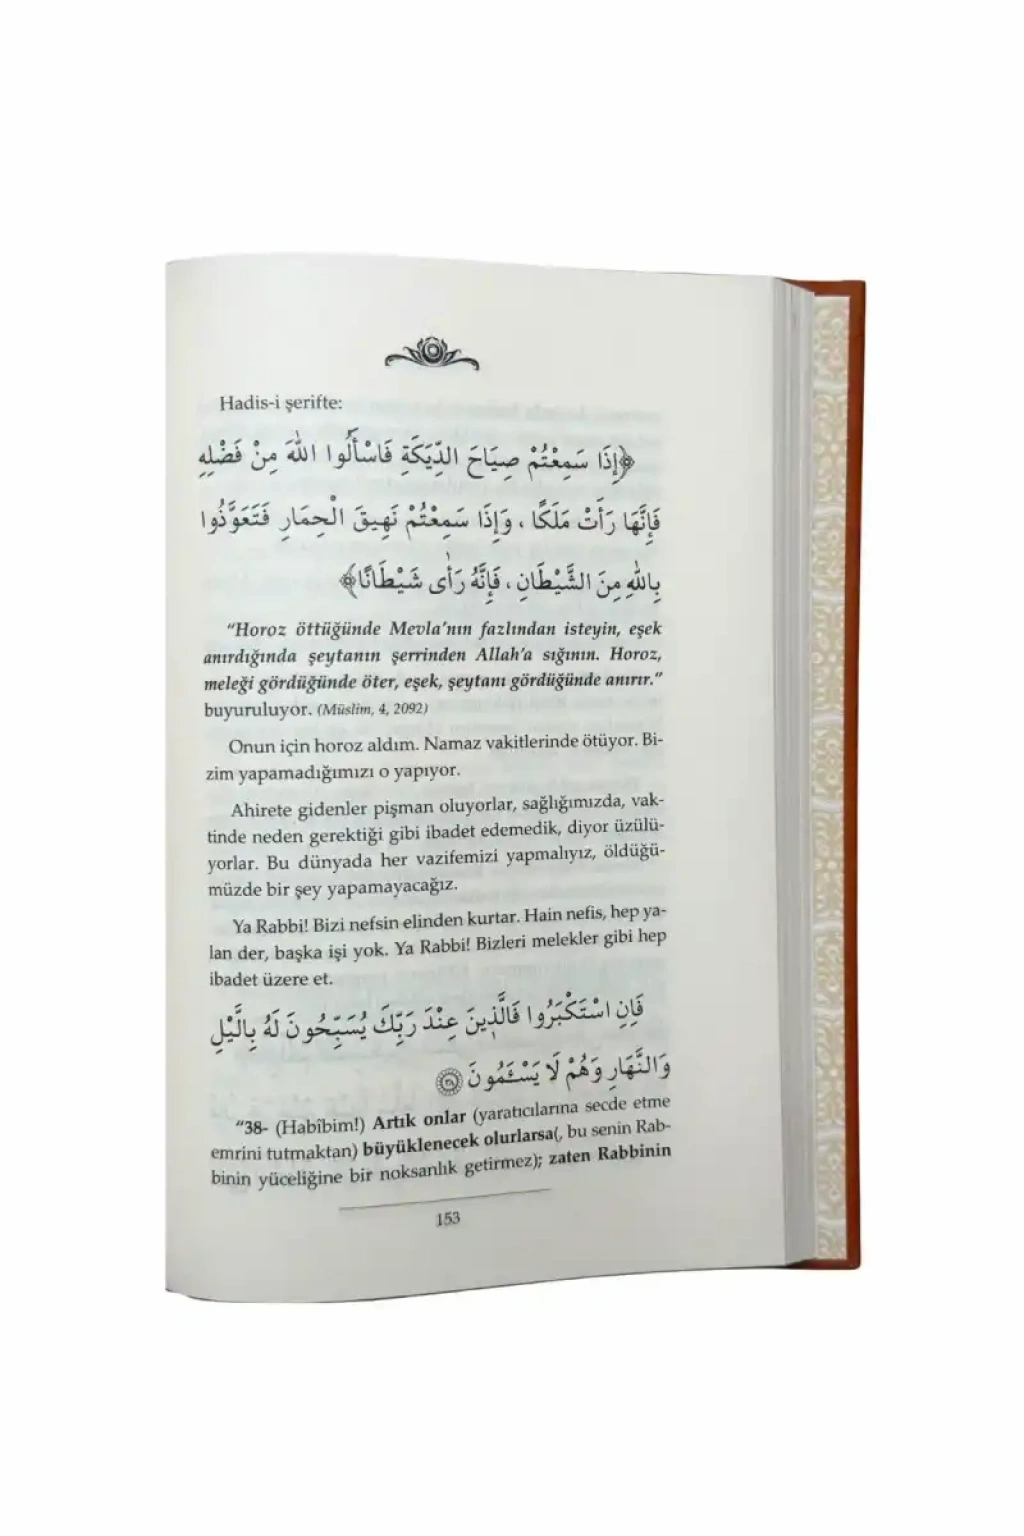 Hadis-i şerifte:
﴿إِذَا سَمِعْتُمْ صِيَاحَ الدِّيَكَةِ فَاسْأَلُوا اللّٰهَ مِنْ فَضْلِهِ
فَإِنَّهَا رَأَتْ مَلَكًا ، وَإِذَا سَمِعْتُمْ نَهِيقَ الْحِمَارِ فَتَعَوَّذُوا
بِاللّٰهِ مِنَ الشَّيْطَانِ ، فَإِنَّهُ رَأٰى شَيْطَانًا﴾
“Horoz öttüğünde Mevla’nın fazlından isteyin, eşek
anırdığında şeytanın şerrinden Allah’a sığının. Horoz,
meleği gördüğünde öter, eşek, şeytanı gördüğünde anırır.”
buyuruluyor. (Müslim, 4, 2092)
Onun için horoz aldım. Namaz vakitlerinde ötüyor. Bi-
zim yapamadığımızı o yapıyor.
Ahirete gidenler pişman oluyorlar, sağlığımızda, vak-
tinde neden gerektiği gibi ibadet edemedik, diyor üzülü-
yorlar. Bu dünyada her vazifemizi yapmalıyız, öldüğü-
müzde bir şey yapamayacağız.
Ya Rabbi! Bizi nefsin elinden kurtar. Hain nefis, hep ya-
lan der, başka işi yok. Ya Rabbi! Bizleri melekler gibi hep
ibadet üzere et.
فَاِنِ اسْتَكْبَرُوا فَالَّذِينَ عِنْدَ رَبِّكَ يُسَبِّحُونَ لَهُ بِالَّيْلِ
وَالنَّهَارِ وَهُمْ لَا يَسْـَٔمُونَ ٣٨
“38- (Habîbim!) Artık onlar (yaratıcılarına secde etme
emrini tutmaktan) büyüklenecek olurlarsa(, bu senin Rab-
binin yüceliğine bir noksanlık getirmez); zaten Rabbinin
153